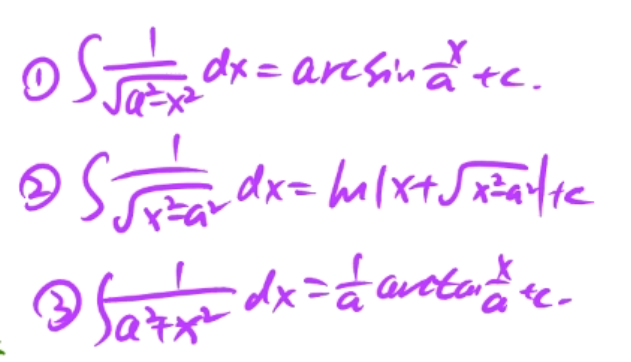 ① ∫ 1/√(a²-x²) dx = arcsin x/a + c.
② ∫ 1/√(x²-a²) dx = ln|x+√(x²-a²)|+c
③ ∫ 1/(a²+x²) dx = 1/a arctan x/a + c.